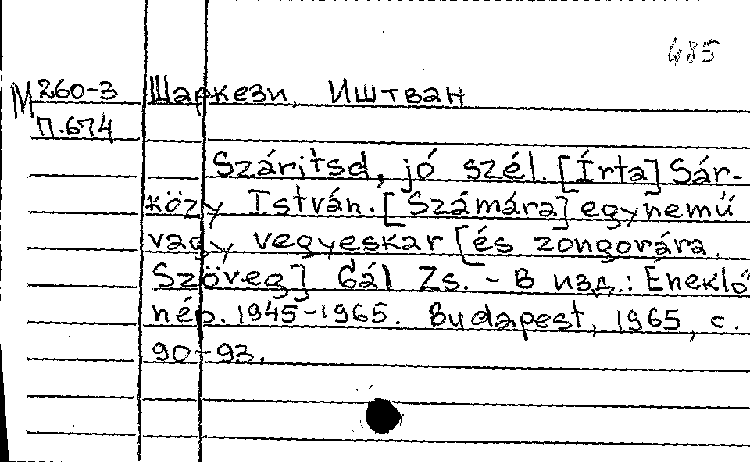 485
М 260-3 Шаркези, Иштван
П.674
Száritsd, jó szél. [Írta] Sár-
közy István. [Számára] egynemű
vagy vegyeskar [és zongorára.
Szöveg] Gál Zs. - В изд.: Éneklő
nép. 1945-1965. Budapest, 1965, с.
90-93.